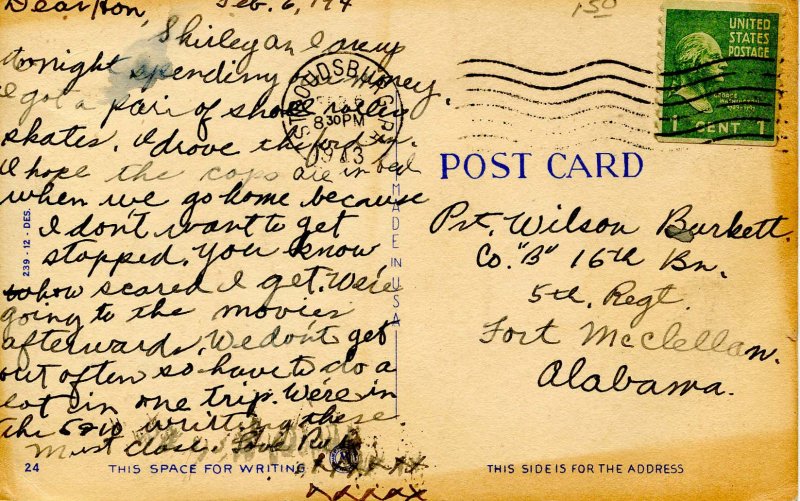 Dear Hon, Feb. 6, 194
Shirley an I away
tonight spending our money.
I got a pair of shoe roller
skates. I drove the car in.
I hope the cops are in bed
when we go home because
I don't want to get
stopped. You know
how scared I get. We're
going to the movies
afterwards. We don't get
out often so have to do a
lot in one trip. We're in
the 5&10 writing these.
Must close. Love
xxxxxx
xxxxx
24 THIS SPACE FOR WRITING
239 - 12 - DES.
MADE IN USA
STROUDSBURG, PA.
FEB 6
8 30 PM
1943
150
UNITED
STATES
POSTAGE
1 CENT 1
POST CARD
Pvt. Wilson Burkett.
Co. "B" 16th Bn.
5th. Regt.
Fort McClellan.
Alabama.
THIS SIDE IS FOR THE ADDRESS